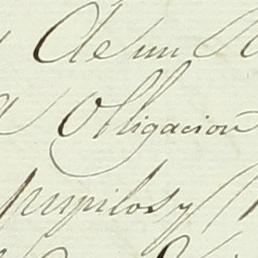 de un
obligacion
pupilos y